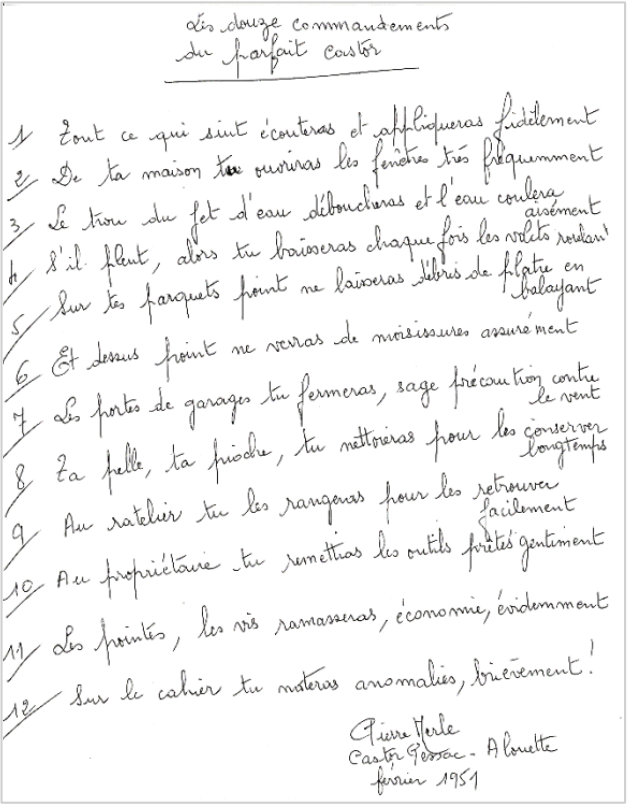 Les douze commandements
du parfait castor
1/ Tout ce qui suit écouteras et appliqueras fidèlement
2/ De ta maison tu ouvriras les fenêtres très fréquemment
3/ Le trou du jet d'eau déboucheras et l'eau coulera
aisément
4/ S'il pleut, alors tu baisseras chaque fois les volets roulant
5/ Sur tes parquets point ne laisseras débris de platre en
balayant
6/ Et dessus point ne verras de moisissures assurément
7/ Les portes de garages tu fermeras, sage précaution contre
le vent
8/ Ta pelle, ta pioche, tu nettoieras pour les conserver
longtemps
9/ Au ratelier tu les rangeras pour les retrouver
facilement
10/ Au propriétaire tu remettras les outils prêtés gentiment
11/ Les pointes, les vis ramasseras, économie, évidemment
12/ Sur le cahier tu noteras anomalies, brièvement!
Pierre Merle
Castor Pessac - Alouette
février 1951